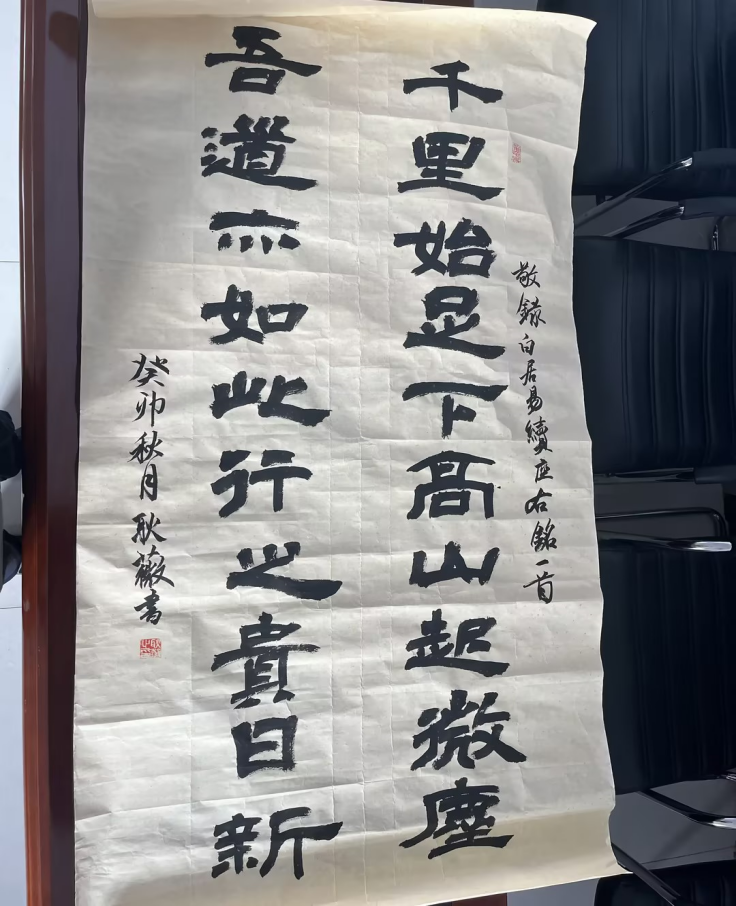 敬録白居易續座右銘一首
千里始足下高山起微塵
吾道亦如此行之貴日新
癸卯秋月耿薇書